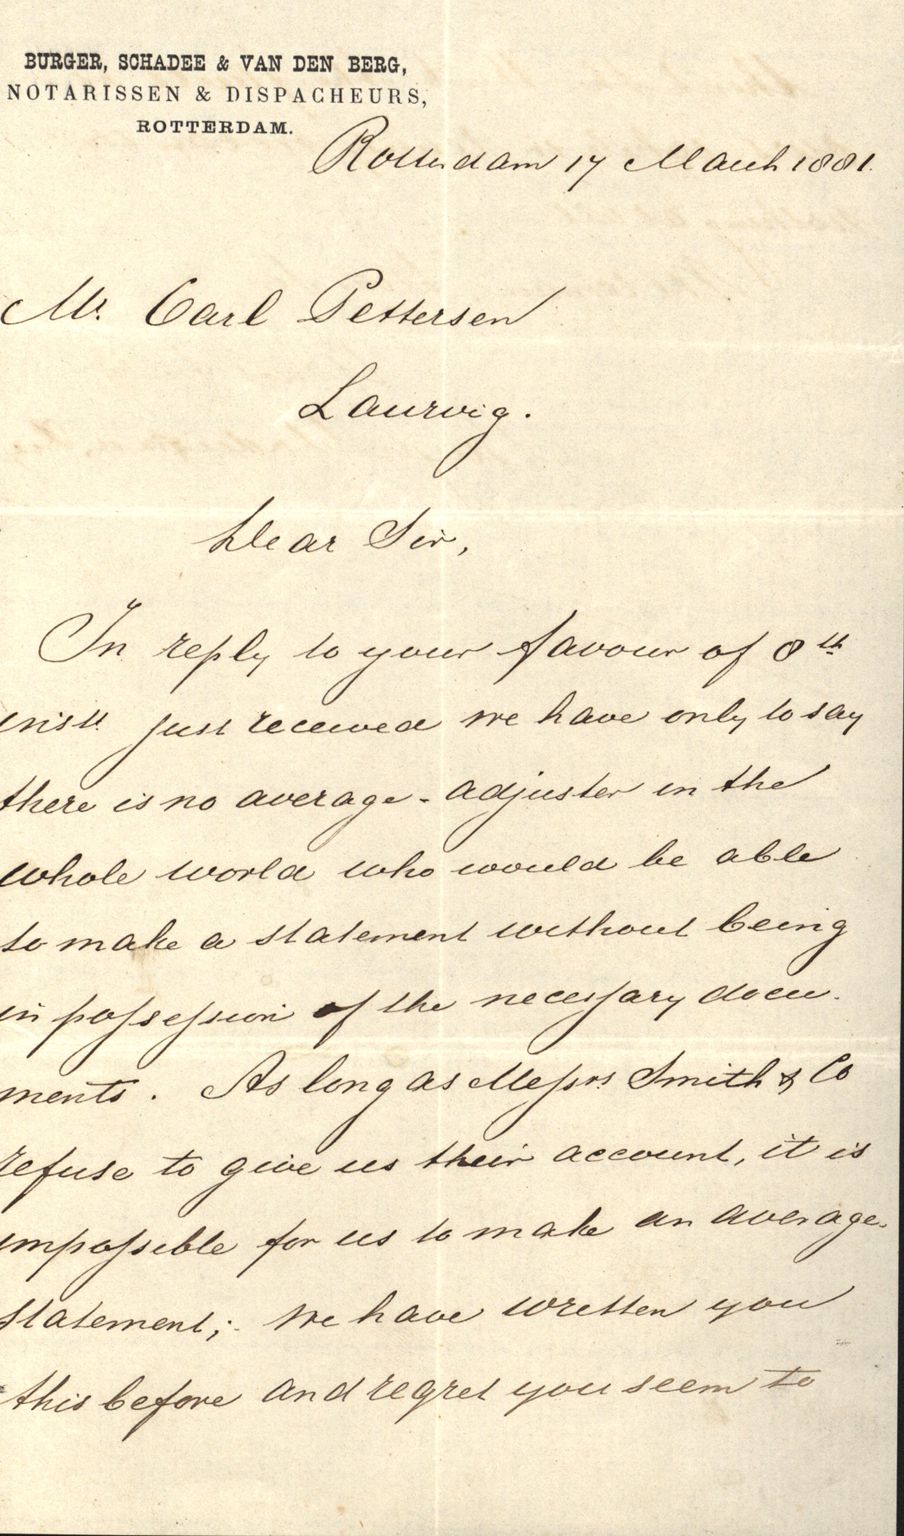 BURGER, SCHADEE & VAN DEN BERG,
NOTARISSEN & DISPACHEURS,
ROTTERDAM.
Rotterdam 17 March 1881.
Mr. Carl Pettersen
Laurvig.
Dear Sir,
In reply to your favour of 8th
inst. just received we have only to say
there is no average-adjuster in the
whole world who would be able
to make a statement without being
in possession of the necessary docu-
ments. As long as Messrs. Smith & Co
refuse to give us their account, it is
impossible for us to make an average-
statement; we have written you
this before and regret you seem to